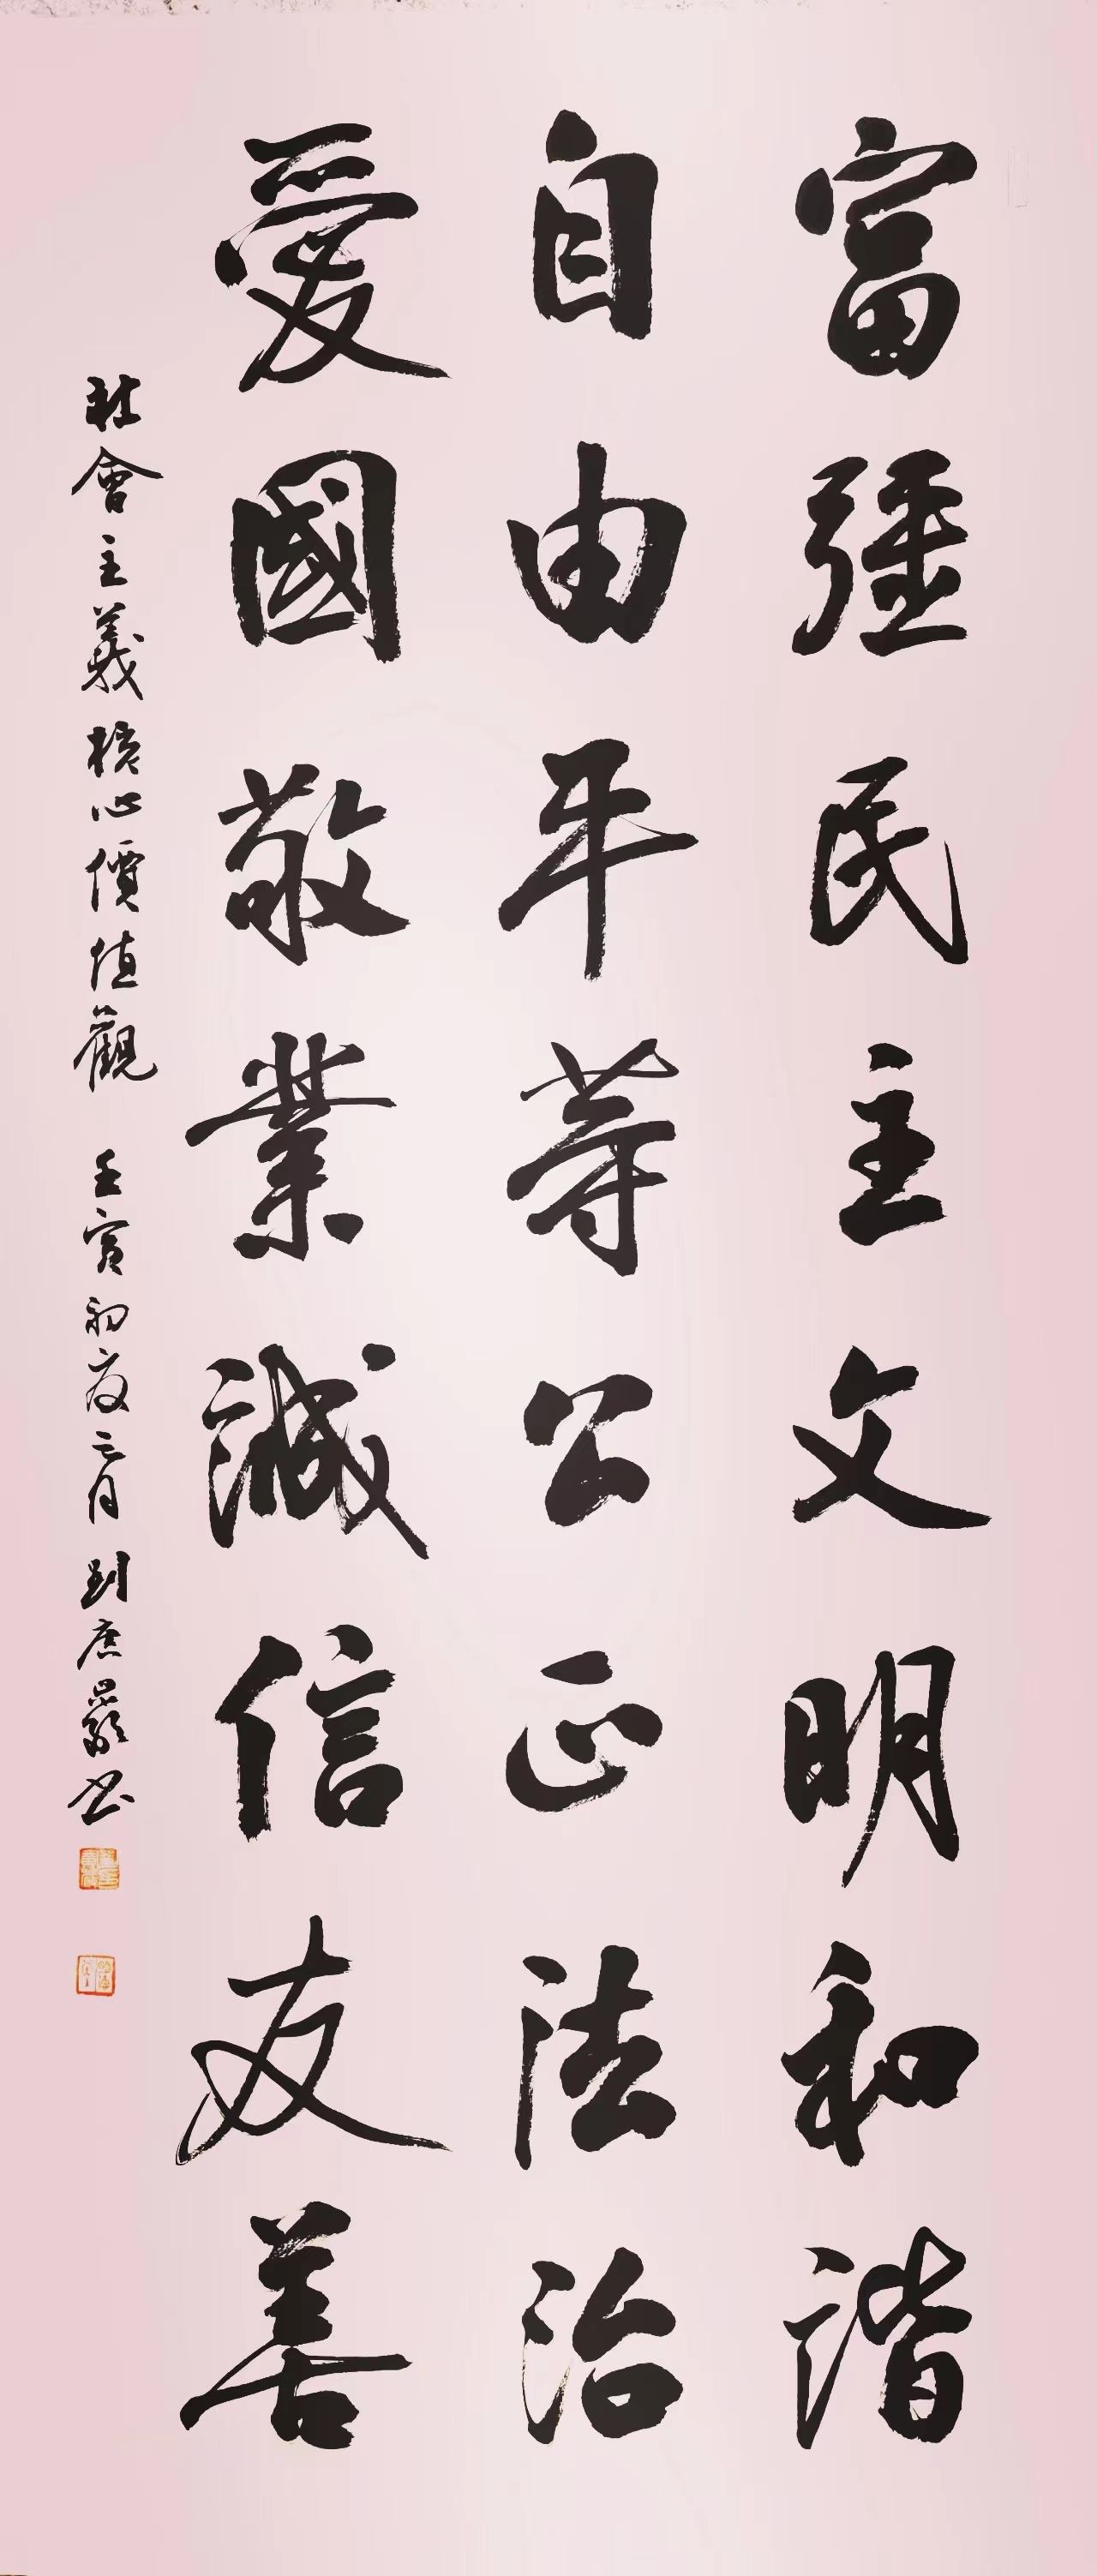 富彊民主文明和諧
自由平等公正法治
愛國敬業誠信友善
社會主義核心價值觀 壬寅初夏二月 劉庶嚴书